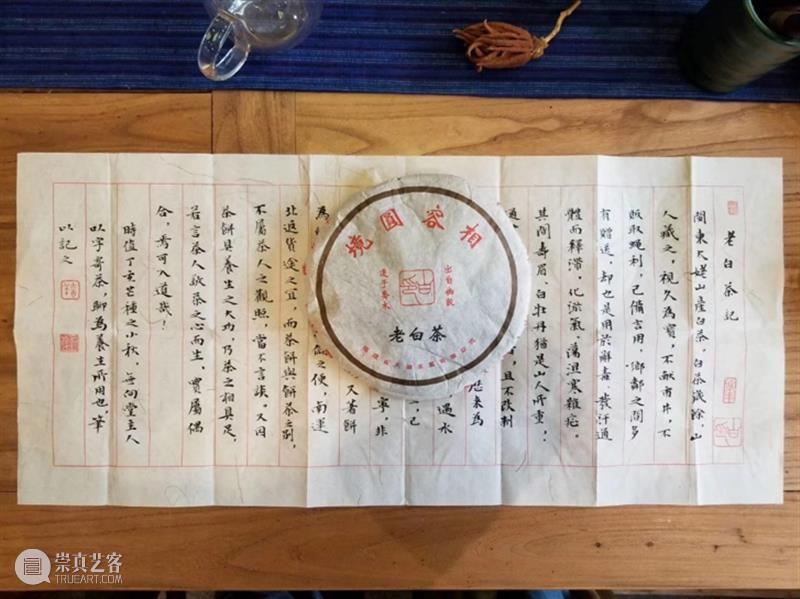 老白茶記
閩東大姥山產白茶。白茶歲餘,山
人藏之,視久為寶,不献市井,不
販取蝇利,已備言用,鄉鄰之間多
有贈送,却也是用於解毒、發汗通
體而釋滯,化淤氣,蕩沮寒雜症。
其間壽眉、白牡丹猶是山人所重,
且不改制
来為
遇水
已
寧,非
又者餅
為
之便,南運
北返貨途之宜,而茶餅與餅茶之别,
不屬茶人之觀照,當不言談。又因
茶餅具養生之大功,乃茶之相具足,
若言茶人祇茶之心而生,實屬偶
合,焉可入道哉!
時值丁亥芒種之小秋,無向堂主人
以字寄茶,聊為養生所用也,筆
以記之
有容圓境
出自幽谷
遷于喬木
老白茶
崇真艺客
TRUEART.COM